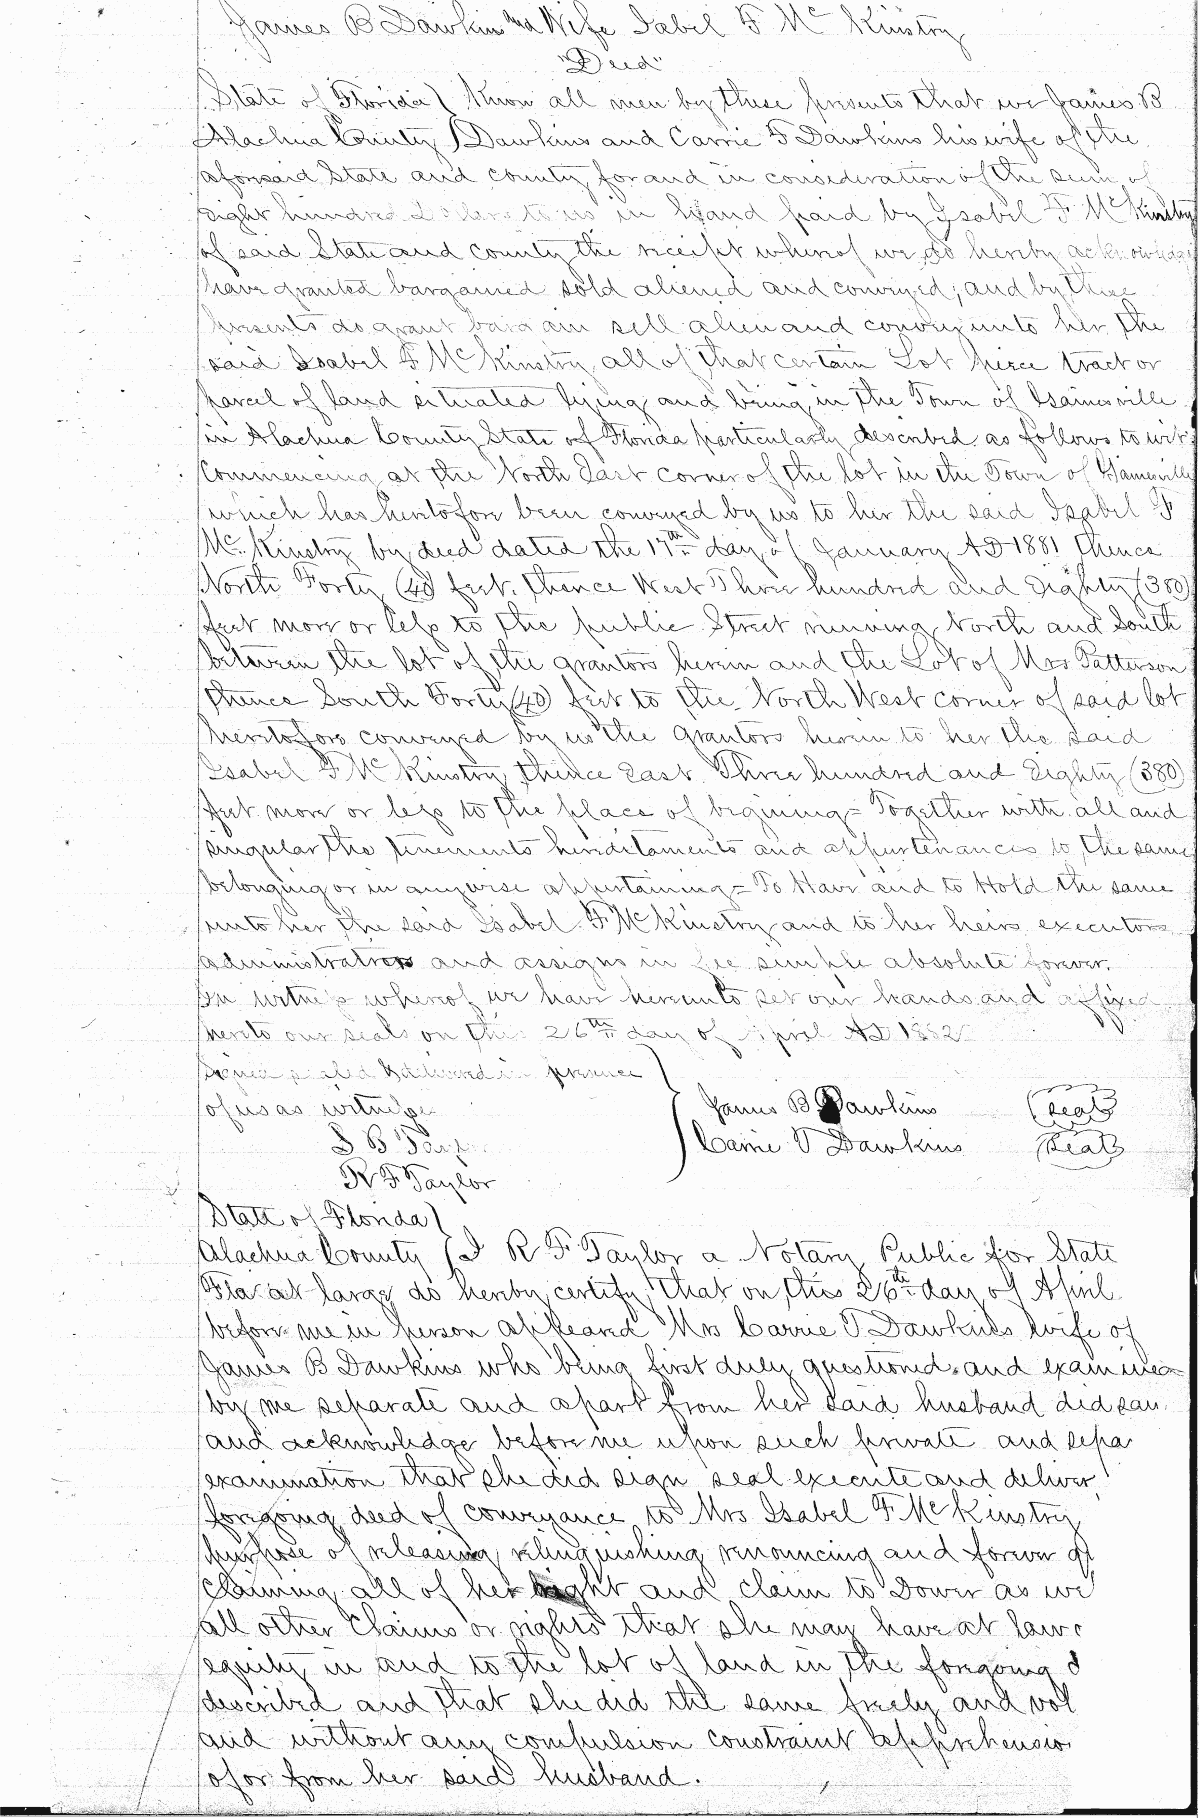 James B Dawkins and Wife Isabel F McKinstry
"Deed"
State of Florida } Know all men by these presents that we James B
Alachua County } Dawkins and Carrie T Dawkins his wife of the
aforesaid State and county for and in consideration of the sum of
eight hundred Dollars to us in hand paid by Isabel F McKinstry
of said State and county the receipt whereof we do hereby acknowledge
have granted bargained sold aliened and conveyed; and by these
presents do grant bargain sell alien and convey unto her the
said Isabel F McKinstry all of that certain Lot piece tract or
parcel of land situated lying and being in the Town of Gainesville
in Alachua County State of Florida particularly described as follows to wit:
Commencing at the North East corner of the lot in the Town of Gainesville
which has heretofore been conveyed by us to her the said Isabel F
McKinstry by deed dated the 17th day of January AD 1881 thence
North Forty (40) feet. thence West Three hundred and Eighty (380)
feet more or less to the public Street running North and South
between the lot of the grantors herein and the Lot of Mrs Patterson
thence South Forty (40) feet to the North West corner of said lot
heretofore conveyed by us the grantors herein to her the said
Isabel F McKinstry thence East Three hundred and Eighty (380)
feet more or less to the place of begining = Together with all and
singular the tenements hereditaments and appurtenances to the same
belonging or in anywise appertaining = To Have and to Hold the same
unto her the said Isabel F McKinstry and to her heirs executors
administrators and assigns in fee simple absolute forever.
In witness whereof we have hereunto set our hands and affixed
hereto our seals on this 26th day of April AD 1882
Signed sealed & delivered in presence
of us as witness
James B Dawkins (Seal)
S B
Carrie T Dawkins (Seal)
R F Taylor
State of Florida }
Alachua County } I R F Taylor a Notary Public for State
Fla at large do hereby certify that on this 26th day of April
before me in person appeared Mrs Carrie T Dawkins wife of
James B Dawkins who being first duly questioned and examined
by me separate and apart from her said husband did say
and acknowledge before me upon such private and sepa
examination that she did sign seal execute and deliver
foregoing deed of conveyance to Mrs Isabel F McKinstry
purpose of releasing relinquishing renouncing and forever q
claiming all of her right and claim to Dower as we
all other claims or rights that she may have at law o
equity in and to the lot of land in the foregoing d
described and that she did the same freely and vol
and without any compulsion constraint apprehensio
of or from her said husband.